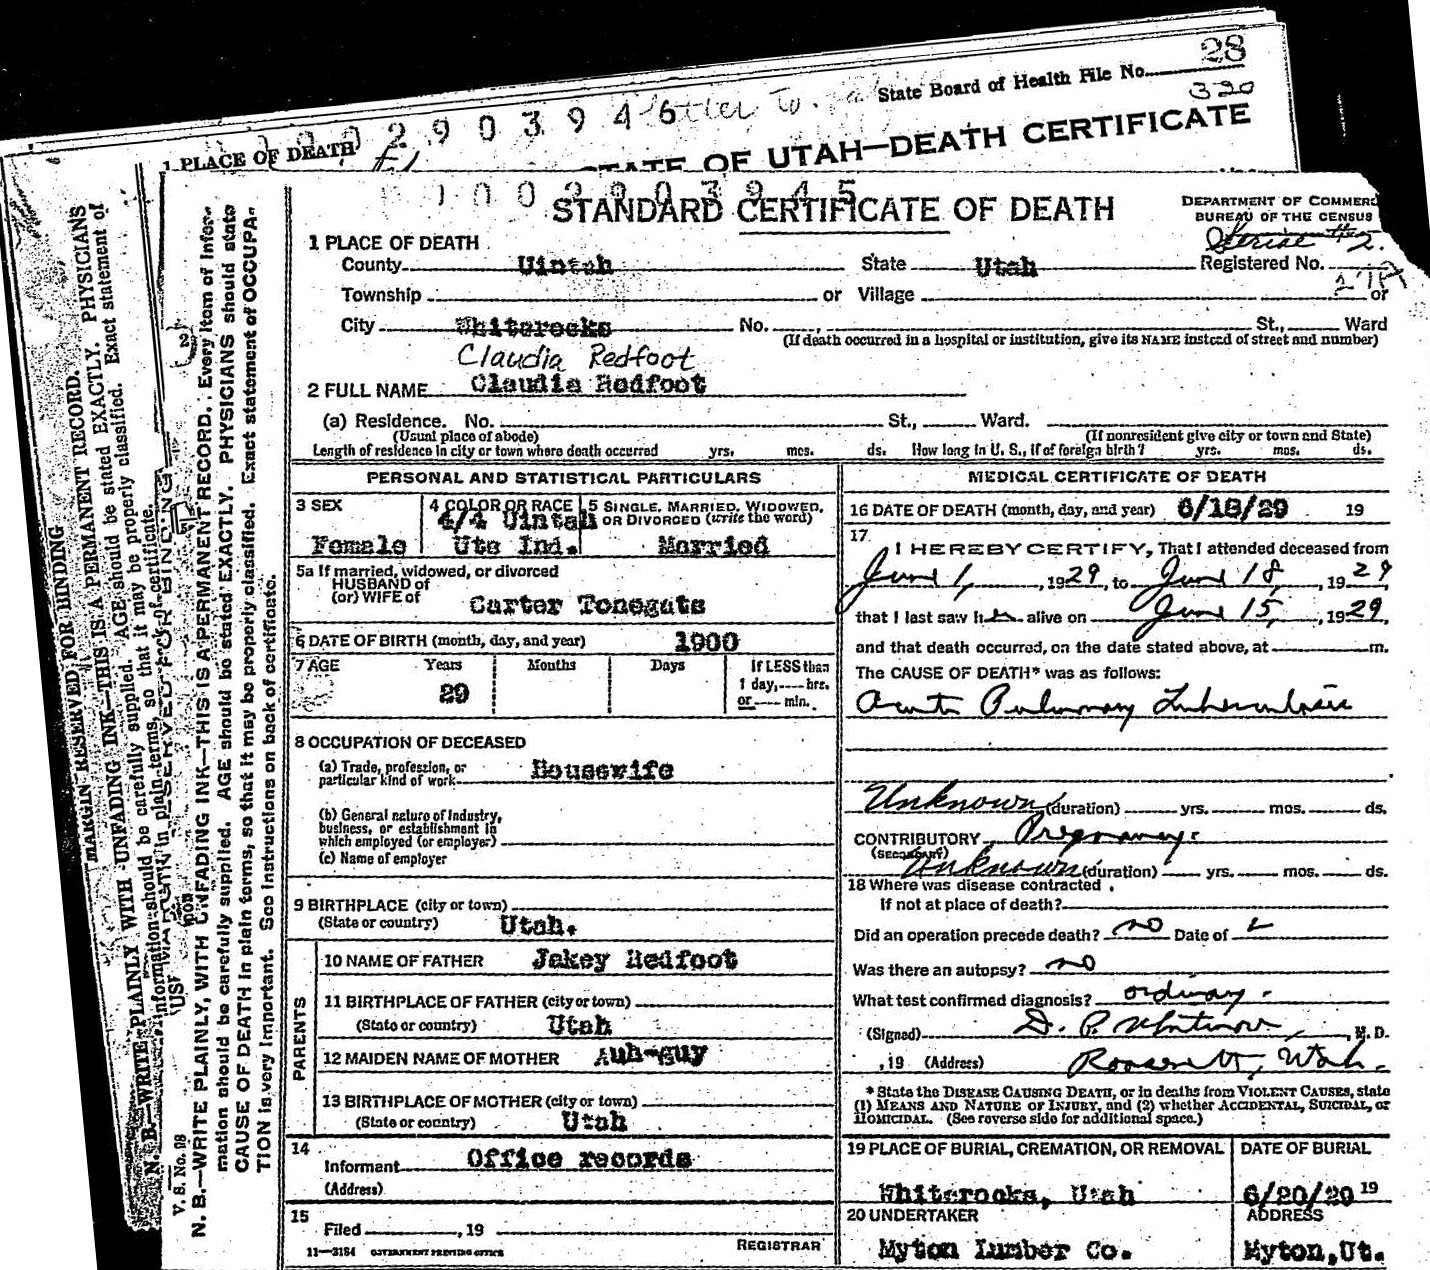 State Board of Health File No. 28
320
290 3946 letter to
1 PLACE OF DEATH
STATE OF UTAH—DEATH CERTIFICATE
1002903945
STANDARD CERTIFICATE OF DEATH
DEPARTMENT OF COMMERC
BUREAU OF THE CENSUS
1 PLACE OF DEATH
County Uintah State Utah Registered No.
Township or Village or
City Whiterocks No. St., Ward
(If death occurred in a hospital or institution, give its NAME instead of street and number)
Claudia Redfoot
2 FULL NAME Claudia Redfoot
(a) Residence. No. St., Ward.
(Usual place of abode) (If nonresident give city or town and State)
Length of residence in city or town where death occurred yrs. mos. ds. How long in U. S., if of foreign birth? yrs. mos. ds.
PERSONAL AND STATISTICAL PARTICULARS
3 SEX
Female
4 COLOR OR RACE
4/4 Uintah
Ute Ind.
5 SINGLE, MARRIED, WIDOWED,
OR DIVORCED (write the word)
Married
5a If married, widowed, or divorced
HUSBAND of
(or) WIFE of Carter Tonegats
6 DATE OF BIRTH (month, day, and year) 1900
7 AGE Years Months Days If LESS than
1 day,----hrs.
29 or ---- min.
8 OCCUPATION OF DECEASED
(a) Trade, profession, or
particular kind of work Housewife
(b) General nature of industry,
business, or establishment in
which employed (or employer)
(c) Name of employer
9 BIRTHPLACE (city or town)
(State or country) Utah.
PARENTS
10 NAME OF FATHER Jakey Redfoot
11 BIRTHPLACE OF FATHER (city or town)
(State or country) Utah
12 MAIDEN NAME OF MOTHER Auh-guy
13 BIRTHPLACE OF MOTHER (city or town)
(State or country) Utah
14
Informant Office records
(Address)
15
Filed , 19
REGISTRAR
11—3184 GOVERNMENT PRINTING OFFICE
MEDICAL CERTIFICATE OF DEATH
16 DATE OF DEATH (month, day, and year) 6/18/29 19
17
I HEREBY CERTIFY, That I attended deceased from
June 1, 1929, to June 18, 1929
that I last saw her alive on June 15, 1929,
and that death occurred, on the date stated above, at m.
The CAUSE OF DEATH* was as follows:
Acute Pulmonary Tuberculosis
Unknown (duration) yrs. mos. ds.
CONTRIBUTORY Pregnancy.
(SECONDARY)
Unknown (duration) yrs. mos. ds.
18 Where was disease contracted
If not at place of death?
Did an operation precede death? no Date of
Was there an autopsy? no
What test confirmed diagnosis? ordinary.
(Signed) D. P. , M. D.
, 19 (Address) Roosevelt, Utah.
* State the DISEASE CAUSING DEATH, or in deaths from VIOLENT CAUSES, state
(1) MEANS AND NATURE OF INJURY, and (2) whether ACCIDENTAL, SUICIDAL, or
HOMICIDAL. (See reverse side for additional space.)
19 PLACE OF BURIAL, CREMATION, OR REMOVAL
Whiterocks, Utah
DATE OF BURIAL
6/20/29 19
20 UNDERTAKER
Myton Lumber Co.
ADDRESS
Myton, Ut.
V. S. No. 98
N. B.—WRITE PLAINLY, WITH UNFADING INK—THIS IS A PERMANENT RECORD. Every item of infor-
mation should be carefully supplied. AGE should be stated EXACTLY. PHYSICIANS should state
CAUSE OF DEATH in plain terms, so that it may be properly classified. Exact statement of OCCUPA-
TION is very important. See instructions on back of certificate.
MARGIN RESERVED FOR BINDING
N. B.—WRITE PLAINLY WITH UNFADING INK—THIS IS A PERMANENT RECORD.
information should be carefully supplied. AGE should be stated EXACTLY. PHYSICIANS
in plain terms, so that it may be properly classified. Exact statement of
certificate.